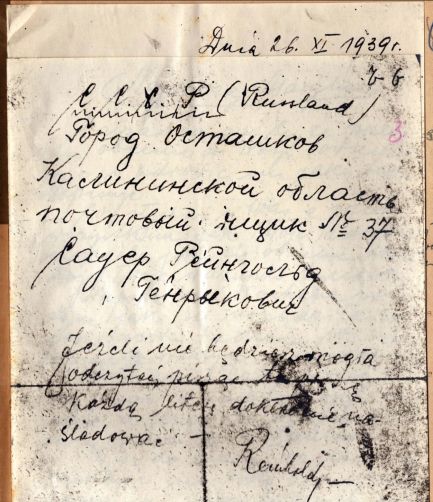 Dnia 26. XI 1939 r.
C C C P (Russland)
Город Осташков
3
Калининской область
почтовый ящик № 37
Сауер Рейнгольд
Генрыкович
Jeżeli nie będziesz mogła
odczytać
Każdą literę dokładnie na-
śladować —
Reinhold